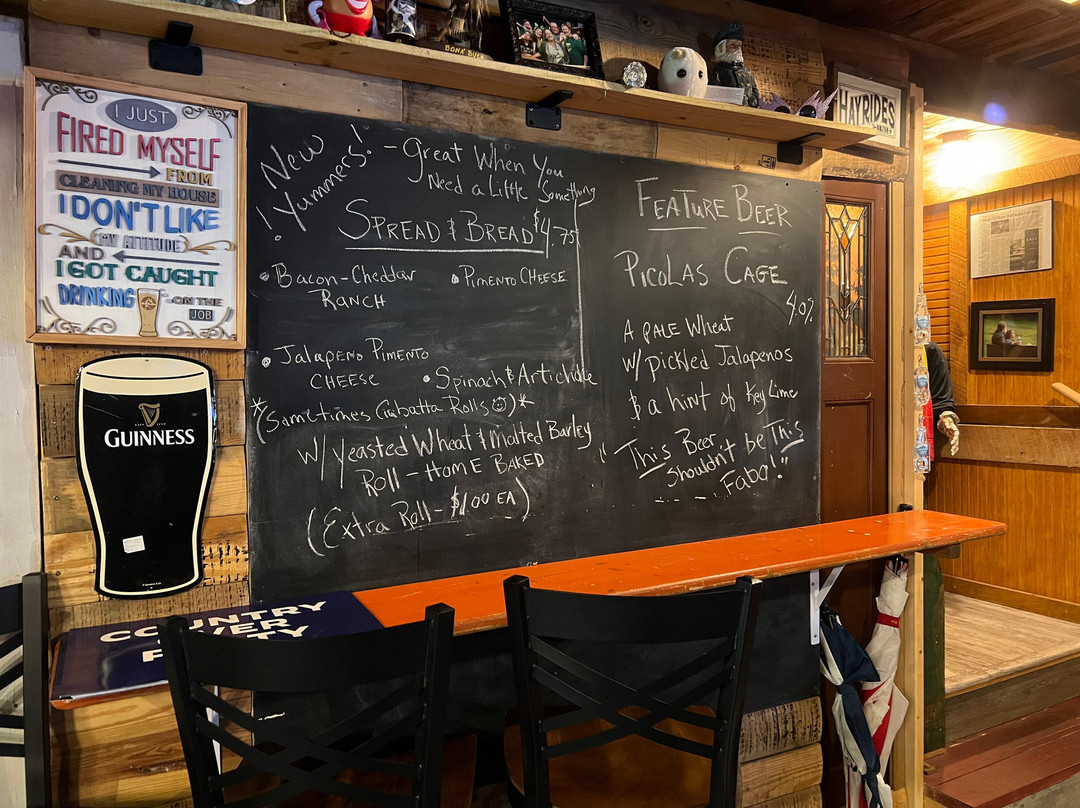 I JUST
FIRED MYSELF
FROM
CLEANING MY HOUSE
I DON'T LIKE
MY ATTITUDE
AND
I GOT CAUGHT
DRINKING ON THE
JOB
GUINNESS
New
! Yummers! - Great When You
Need a Little Something
SPREAD & BREAD $4.75
• Bacon-Cheddar
RANCH
• PIMENTO CHEESE
• JALAPENO PIMENTO
CHEESE
• Spinach & Artichoke
*(Sometimes Ciabatta Rolls)*
w/ Yeasted Wheat & Malted Barley
Roll - HOME BAKED
(Extra Roll - $1.00 EA)
FEATURE BEER
PICOLAS CAGE
4.0%
A PALE Wheat
w/ Pickled Jalapenos
& a hint of Key Lime
"This Beer
Shouldn't be This
Fabo!"
BONA'
HAYRIDES
COUNTRY
OVER